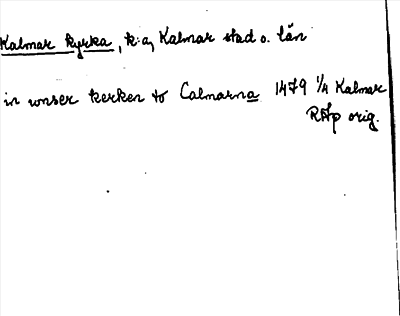 Kalmar kyrka, k:a, Kalmar stad o. län
in unser kerken to Calmarna 1479 1/4 Kalmar
RAp orig.